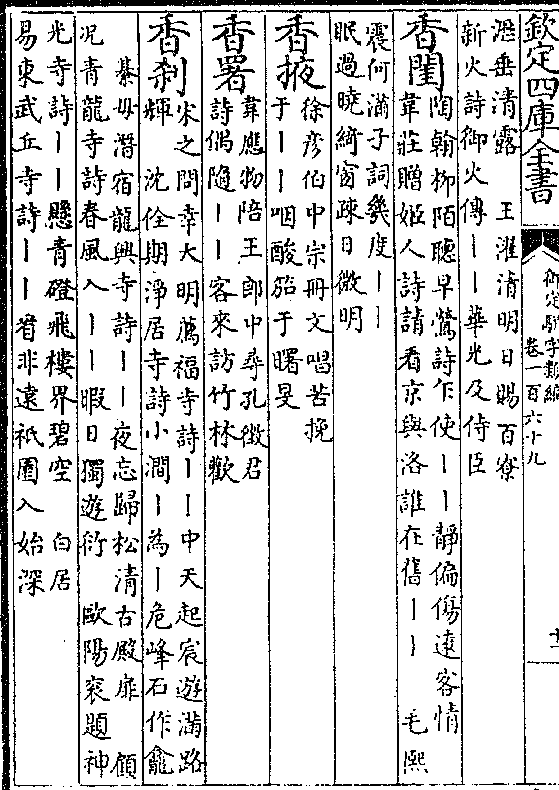 欽定四庫全書
御定駢字類編
卷一百六十九
十二
溼垂清露　王濯清明日賜百寮
新火詩御火傳――華光及侍臣
香閨
陶翰柳陌聽早鶯詩乍使――靜偏傷遠客情
韋莊贈姬人詩請看京與洛誰在舊――　毛熙
震何滿子詞幾度――
眠過曉綺窗疎日微明
香掖
徐彦伯中宗冊文唱苦挽
于――咽酸笳于曙旻
香署
韋應物陪王郎中尋孔徵君
詩偶隨――客來訪竹林歡
香剎
宋之問幸大明薦福寺詩――中天起宸遊滿路
輝　沈佺期淨居寺詩小澗―為―危峰石作龕
綦毋潛宿龍興寺詩――夜忘歸松清古殿扉　顧
况青龍寺詩春風入――暇日獨遊衍　歐陽袞題神
光寺詩――懸青磴飛樓界碧空　白居
易東武丘寺詩――看非遠祇園入始深